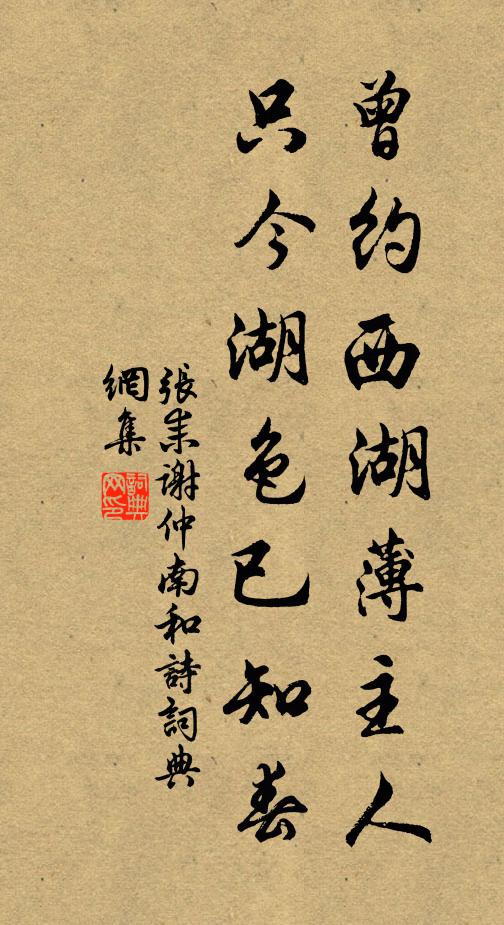 曾約西湖薄主人
只今湖色已知春
張耒謝仲南和詩詞典
網集
詞典
网印